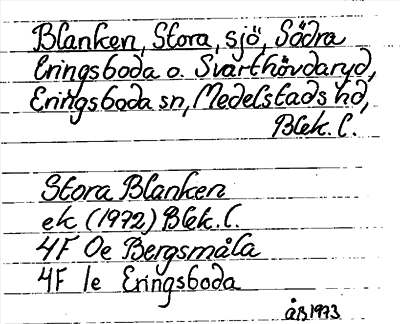 Blanken, Stora, sjö, Södra
Eringsboda o. Svarthövdaryd,
Eringsboda sn, Medelstads hd,
Blek. l.
Stora Blanken
ek (1972) Blek. l.
4F 0e Bergsmåla
4F 1e Eringsboda
åB 1973